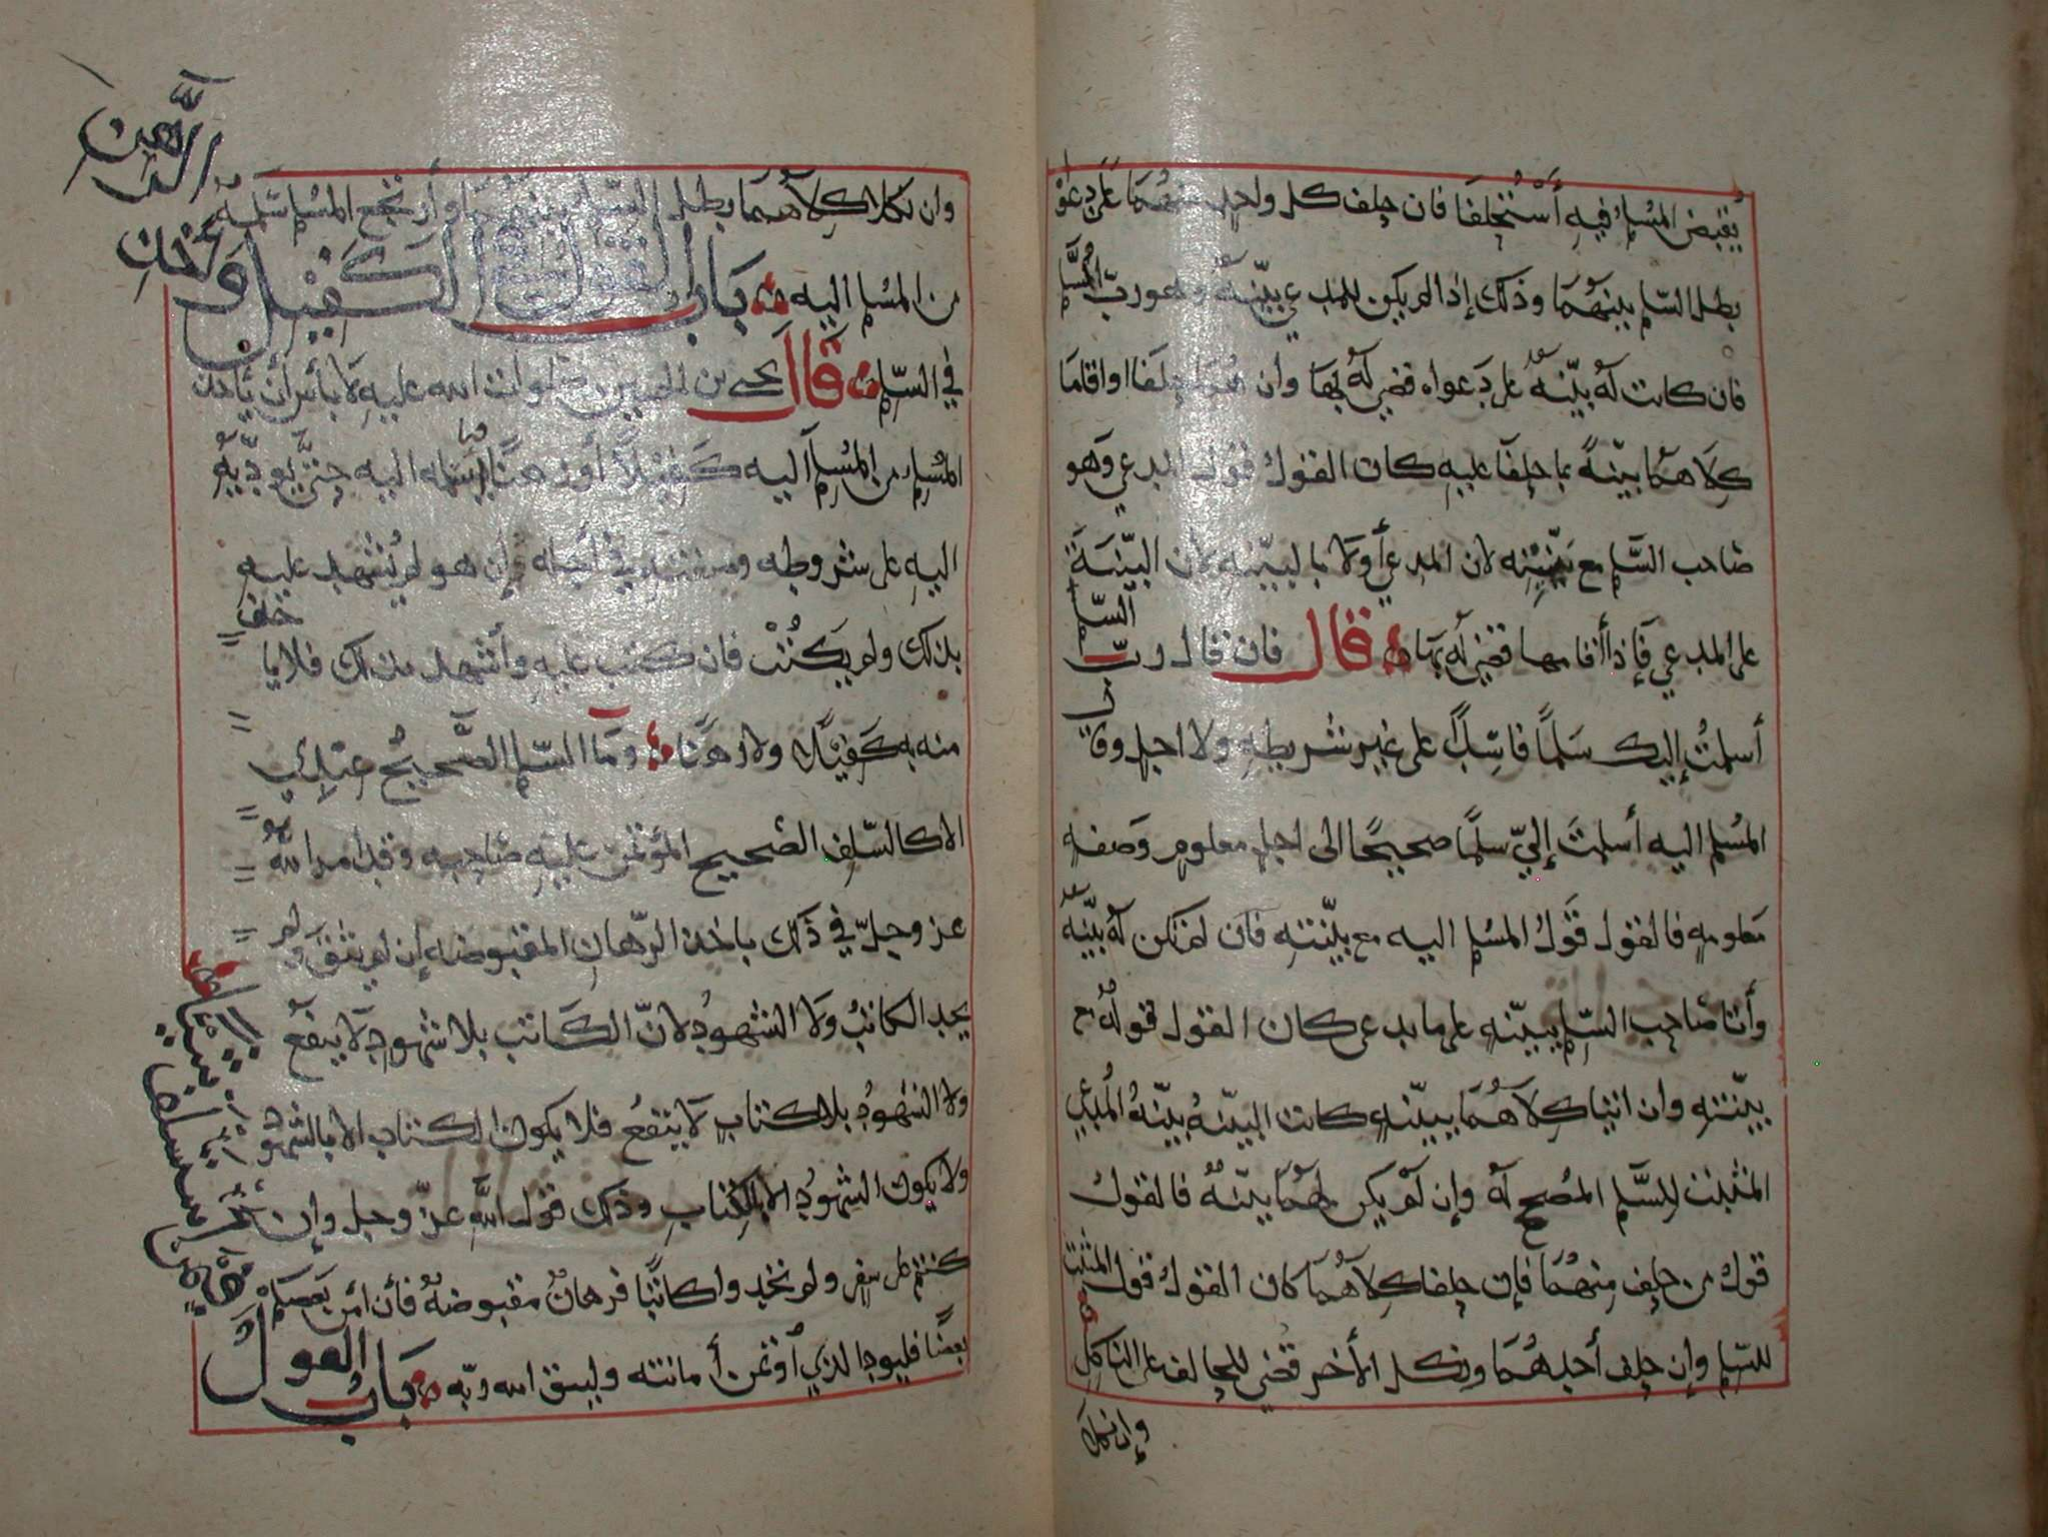 يقبض المسلم فيه أستحلفا فان حلف كل واحد منهما على دعوا
بطل السلم بينهما وذلك إذا لم يكن للمدعي بينة وهو رب السلم
فان كانت له بينة على دعواه قضي له بها وان هما حلفا او اقاما
كلاهما بينة بما حلفا عليه كان القول قول المدعي وهو
صاحب السلم مع بينته لان المدعي أولا بالبينه لان البينة
على المدعي فإذا أقامها قضي له بها قال فان قال رب السلم
أسلمت إليك سلما فاسدا على غير شريطه ولا اجل وقال
المسلم اليه أسلمت إلي سلما صحيحا الى اجل معلوم وصفه
معلومه فالقول قول المسلم اليه مع بينته فان لم تكن له بينة
وأتا صاحب السلم ببينه على ما يدعى كان القول قوله مع
بينته وان اتيا كلاهما ببينه كانت البينة بينة المدعي
المثبت للسلم المصحح له وإن لم يكن لهما بينة فالقول
قول من حلف منهما فإن حلفا كلاهما كان القول قول المثبت
للسلم وإن حلف أحدهما ونكل الأخر قضي للحالف على الناكل
وان نكلا
وان نكلا كلاهما بطل السلم بينهما وارتجع المسلم سلمه
من المسلم اليه باب القول في الكفيل وأخذ الرهن
في السلم قال يحيى بن الحسين صلوات الله عليه لا بأس أن يأخذ
المسلم من المسلم اليه كفيلا أو رهنا فيما اسلمه اليه حتى يوديه
اليه على شروطه وصفته في أجله إن هو لم يشهد عليه
بذلك ولم يكتب فان كتب عليه وأشهد بذلك فلا يأخذ
منه به كفيلا ولا رهنا وما السلم الصحيح عندي
الا كالسلف الصحيح المؤتمن عليه صاحبه وقد امر الله
عز وجل في ذلك باخذ الرهان المقبوضه إن لم يثق ولم
يجد الكاتب ولا الشهود لان الكاتب بلا شهود لا ينفع
ولا الشهود بلا كتاب لا ينفع فلا يكون الكتاب الا بالشهود
ولا يكون الشهود الا بالكتاب وذلك قول الله عز وجل وإن
كنتم على سفر ولم تجدوا كاتبا فرهان مقبوضة فأن أمن بعضكم
بعضا فليود الذي أوتمن أمانته وليتق الله ربه باب القول